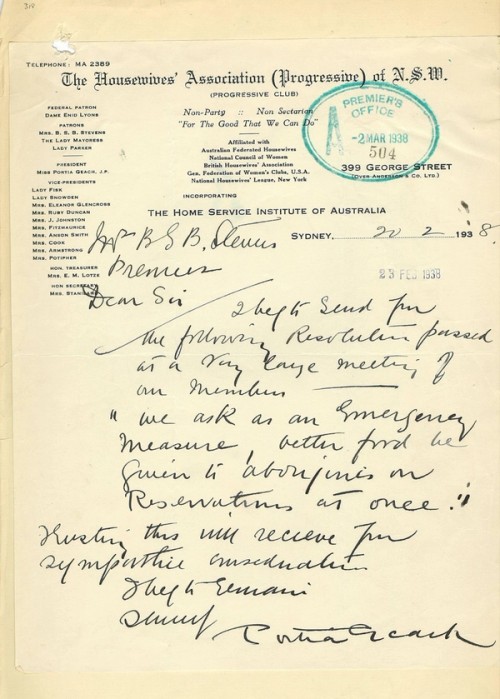 310
TELEPHONE: MA 2389
The Housewives' Association (Progressive) of N.S.W.
(PROGRESSIVE CLUB)
FEDERAL PATRON
DAME ENID LYONS
PATRONS
MRS. B. S. B. STEVENS
THE LADY MAYORESS
LADY PARKER
PRESIDENT
MISS PORTIA GEACH, J.P.
VICE-PRESIDENTS
LADY FISK
LADY SNOWDEN
MRS. ELEANOR GLENCROSS
MRS. RUBY DUNCAN
MRS. J. JOHNSTON
MRS. FITZMAURICE
MRS. ANDER SMITH
MRS. COOK
MRS. ARMSTRONG
MRS. POTIPHER
HON. TREASURER
MRS. E. M. LOTZE
HON SECRETARY
MRS. STANI
Non-Party :: Non Sectarian
"For The Good That We Can Do"
Affiliated with
Australian Federated Housewives
National Council of Women
British Housewives' Association
Gen. Federation of Women's Clubs, U.S.A.
National Housewives' League, New York
PREMIER'S
OFFICE
-2 MAR 1938
504
399 GEORGE STREET
(OVER ANDERSON & CO. LTD.)
INCORPORATING
THE HOME SERVICE INSTITUTE OF AUSTRALIA
SYDNEY, 20 2 1938.
B S B. Stevens
Premier
23 FEB 1938
Dear Sir
I beg to send you
the following Resolution passed
at a very large meeting of
our members
"We ask as an Emergency
Measure, better food be
given to aborigines on
Reservations at once."
Trusting this will recieve your
sympathic consideration
I beg to remain
Portia Geach